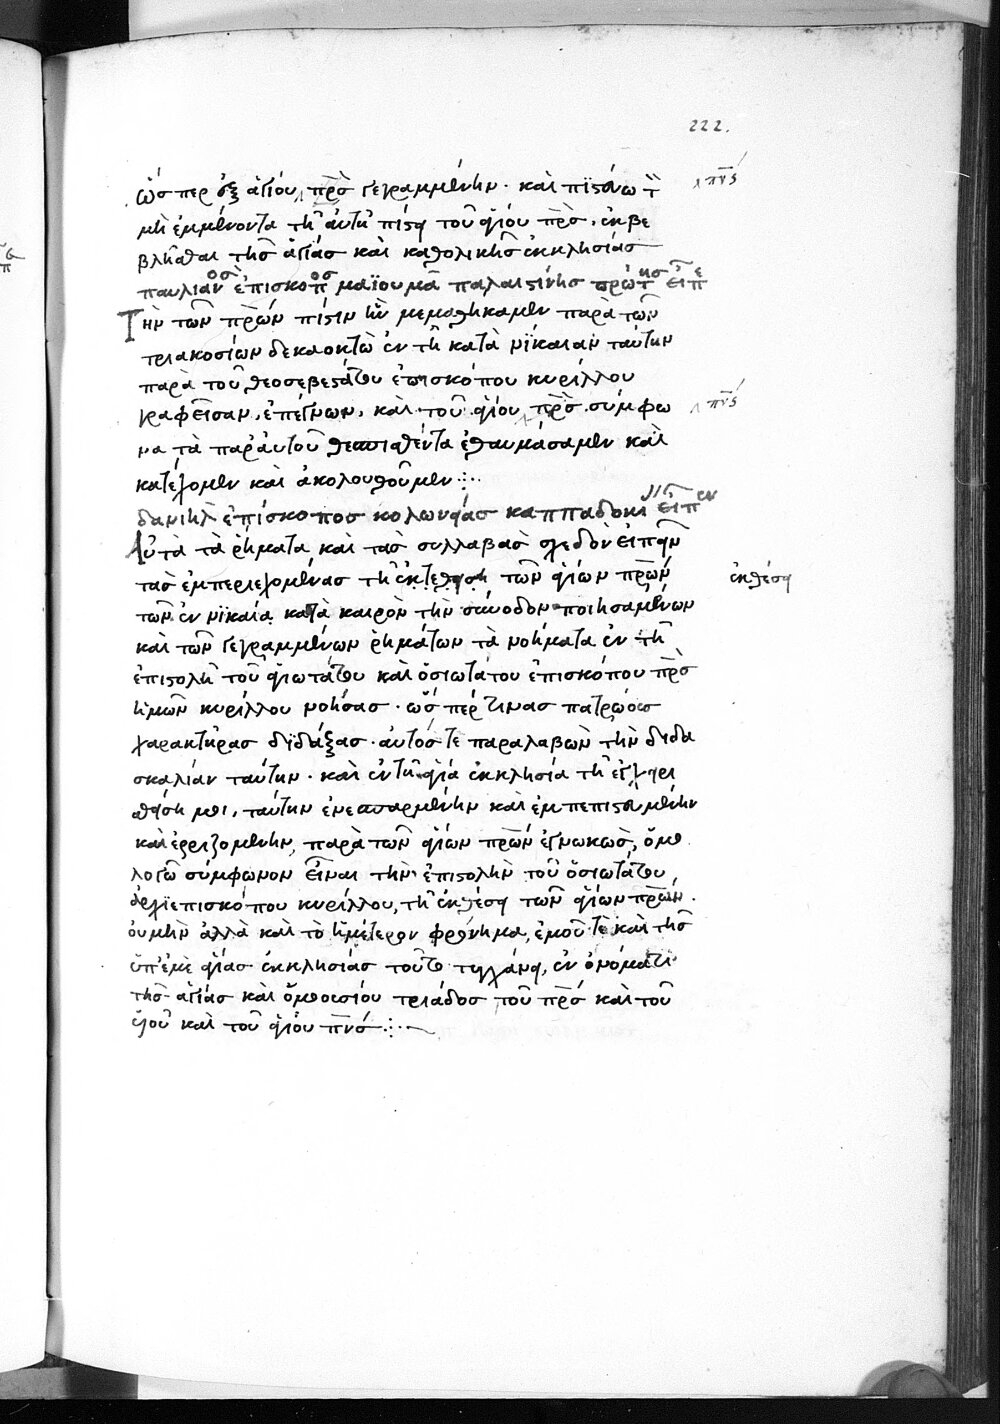 222.
ὥσπερ ἐξ ἁγίου πρ̅σ γεγραμμένην. καὶ πιστεύω τ
μὴ ἐμμένοντα τῇ αὐτῇ πίστει τοῦ ἁγίου πρ̅σ, ἐκβε
βλῆσθαι τῆς ἁγίας καὶ καθολικῆς ἐκκλησίας
παυλιανος ἐπίσκοπος μαϊουμᾶ παλαιστίνης πρώτης εἶπε
Τὴν τῶν πρ̅ων πίστιν ἣν μεμαθήκαμεν παρὰ τῶν
τριακοσίων δεκαοκτὼ ἐν τῇ κατὰ νίκαιαν ταύτην
παρὰ τοῦ θεοσεβεστάτου ἐπισκόπου κυρίλλου
γραφεῖσαν, ἐπέγνων, καὶ τοῦ ἁγίου πρ̅σ σύμφω
να τὰ παρ' αὐτοῦ θεσπισθέντα ἐθαυμάσαμεν καὶ
κατέχομεν καὶ ἀκολουθοῦμεν
δανιὴλ ἐπίσκοπος κολωνείας καππαδοκι εἶπεν
Αὐτὰ τὰ ῥήματα, καὶ τὰς συλλαβὰς σχεδὸν εἰπεῖν
τὰς ἐμπεριεχομένας τῇ ἐκτεθείσῃ τῶν ἁγίων πρ̅ων
τῶν ἐν νικαία κατὰ καιρὸν τὴν σύνοδον ποιησαμένων
καὶ τῶν γεγραμμένων ῥημάτων τὰ νοήματα ἐν τῇ
ἐπιστολῇ τοῦ ἁγιωτάτου καὶ ὁσιωτάτου ἐπισκόπου πρ̅σ
ἡμῶν κυρίλλου νοήσας. ὥσπέρ τινας πατρώους
χαρακτῆρας διδάξας. αὐτός τε παραλαβὼν τὴν διδα
σκαλίαν ταύτην. καὶ ἐν τῇ ἁγία ἐκκλησία τῇ ἐγχειρι
σθείσῃ μοι, ταύτην ἐνεσπαρμένην καὶ ἐμπεπιστευμένην
καὶ ἐρριζομένην, παρὰ τῶν ἁγίων πρ̅ων ἐγνωκὼς, ὁμο
λογῶ σύμφωνον εἶναι τὴν ἐπιστολὴν τοῦ ὁσιωτάτου
ἀρχιεπισκόπου κυρίλλου, τῇ ἐκθέσει τῶν ἁγίων πρ̅ων.
οὐ μὴν ἀλλὰ καὶ τὸ ἡμέτερον φρόνημα, ἐμοῦ τε καὶ τῆς
ὑπ' ἐμὲ ἁγίας ἐκκλησίας τοῦτο τυγχάνει, ἐν ὀνόματι
τῆς ἁγίας καὶ ὁμοουσίου τριάδος τοῦ πρ̅σ καὶ τοῦ
υἱοῦ καὶ τοῦ ἁγίου πν̅σ
πν̅σ
πν̅σ
ἐκθέσει